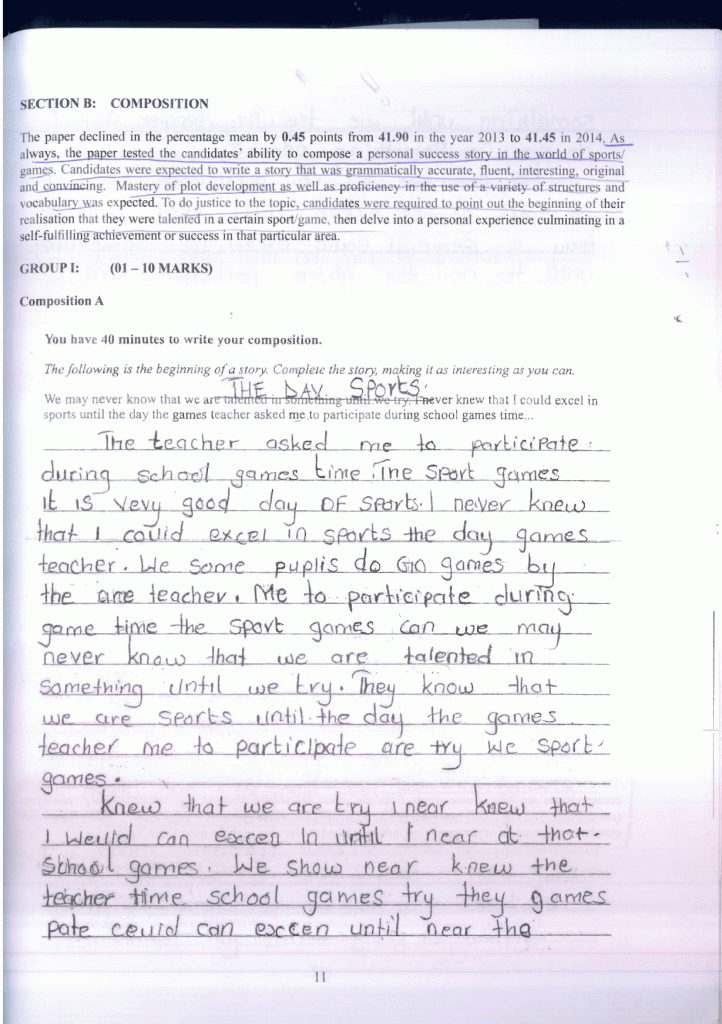 SECTION B: COMPOSITION
The paper declined in the percentage mean by 0.45 points from 41.90 in the year 2013 to 41.45 in 2014. As
always, the paper tested the candidates' ability to compose a personal success story in the world of sports/
games. Candidates were expected to write a story that was grammatically accurate, fluent, interesting, original
and convincing. Mastery of plot development as well as proficiency in the use of a variety of structures and
vocabulary was expected. To do justice to the topic, candidates were required to point out the beginning of their
realisation that they were talented in a certain sport/game, then delve into a personal experience culminating in a
self-fulfilling achievement or success in that particular area.
GROUP I: (01 – 10 MARKS)
Composition A
You have 40 minutes to write your composition.
The following is the beginning of a story. Complete the story, making it as interesting as you can.
THE DAY Sports.
We may never know that we are talented in something until we try. I never knew that I could excel in
sports until the day the games teacher asked me to participate during school games time...
The teacher asked me to participate.
during school games time. The sport games
it is very good day OF sports. I never knew
that I could excel in sports the day games
teacher. We some puplis do Go games by
the are teacher. Me to participate during
game time the sport games can we may
never know that we are talented in
something until we try. They know that
we are sports until the day the games
teacher me to participate are try we sport
games.
Knew that we are try I near knew that
I weuld can exccen in until I near at that.
School games. We show near knew the
teacher time school games try they games
pate ceuld can exccen until near the
11